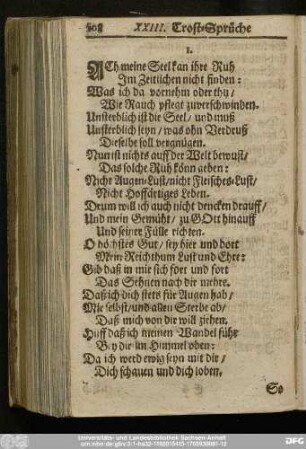 508 XXIII. Trost-Sprüche
1.
ACh meine Seel kan ihre Ruh
Im Zeitlichen nicht finden:
Was ich da vornehm oder thu/
Wie Rauch pflegt zuverschwinden.
Unsterblich ist die Seel/ und muß
Unsterblich seyn/ was ohn Verdruß
Dieselbe soll vergnügen.
Nun ist nichts auff der Welt bewust/
Das solche Ruh könn geben:
Nicht Augen-Lust/ nicht Fleisches-Lust/
Nicht Hoffärtiges Leben.
Drum will ich auch nicht dencken drauff/
Und mein Gemüht/ zu GOtt hinauff
Und seiner Fülle richten.
O höchstes Gut/ sey hier und dort
Mein Reichthum Lust und Ehre:
Gib daß in mir sich fort und fort
Das Sehnen nach dir mehre.
Daß ich dich stets für Augen hab/
Mir selbst/ und allen Sterbe ab/
Daß mich von dir will ziehen.
Hilff daß ich meinen Wandel führ
Bey dir im Himmel oben:
Da ich werd ewig seyn mit dir/
Dich schauen und dich loben.
So
Universitäts- und Landesbibliothek Sachsen-Anhalt
DFG